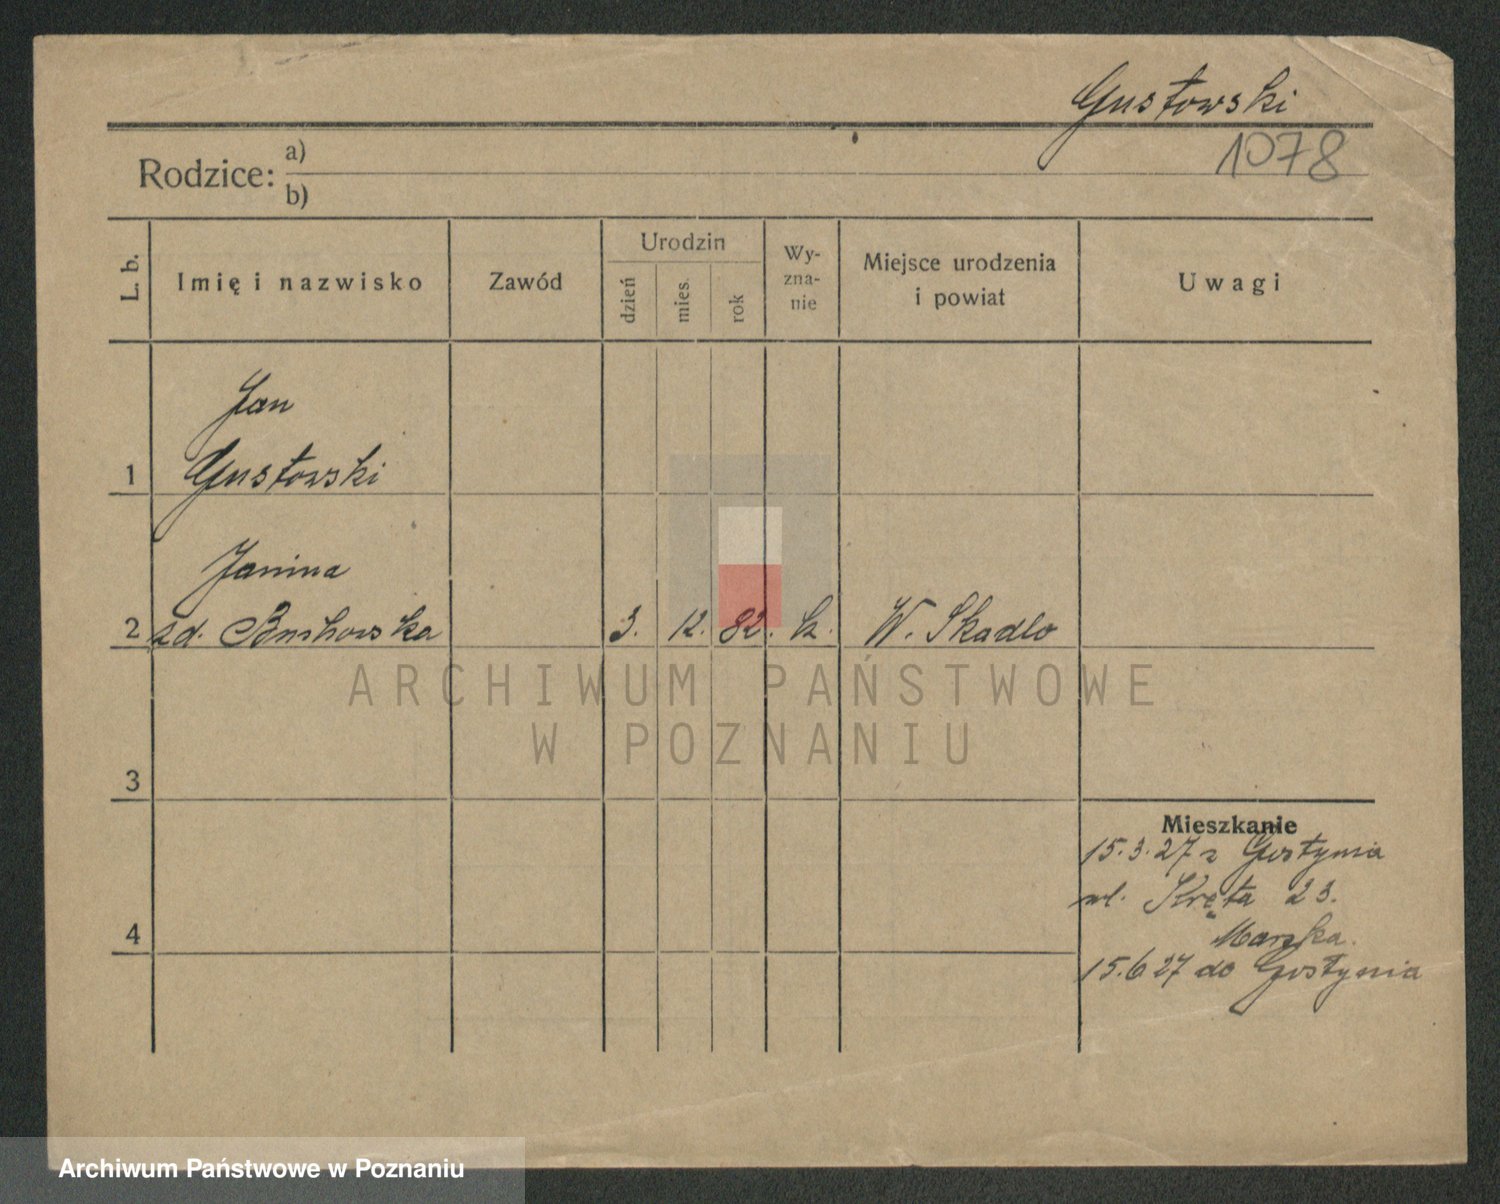 Gustowski
1078
Rodzice: a)
b)
L. b.
Imię i nazwisko
Zawód
Urodzin
dzień
mies.
rok
Wy-
zna-
nie
Miejsce urodzenia
i powiat
Uwagi
Jan
1 Gustowski
Janina
2 zd. 3. 12. 82. k. W. Skadlo
ARCHIWUM PAŃSTWOWE
W POZNANIU
3
Mieszkanie
15.3.27 z Gostynia
wl. Kręta 23.
4
15.6 27 do Gostynia
Archiwum Państwowe w Poznaniu